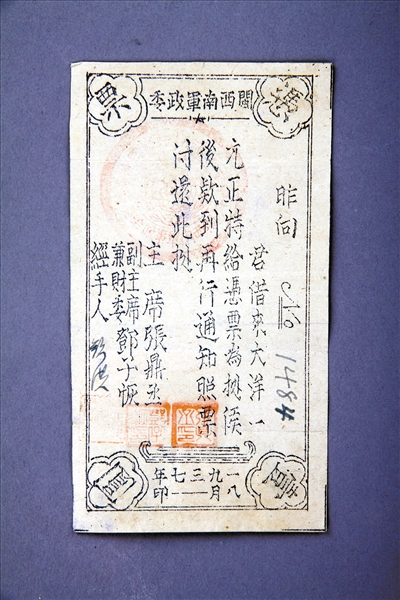 閩西南軍政委
憑
票
昨向 君借來大洋一
元正特給憑票為據俟
後款到再行通知照票
付還此據
主席張鼎丞
副主席
兼財委鄧子恢
經手人
1484
一九三七年
八月——印